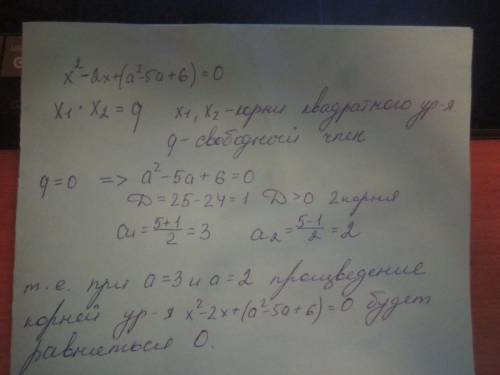 x²-2x+(a²-5a+6)=0
x₁·x₂=q x₁, x₂-корни квадратного ур-я
q-свободный член
q=0 => a²-5a+6=0
D=25-24=1 D>0 2 корня
a₁=(5+1)/2=3 a₂=(5-1)/2=2
т.е. при a=3 и a=2 произведение
корней ур-я x²-2x+(a²-5a+6)=0 будет
равняться 0.